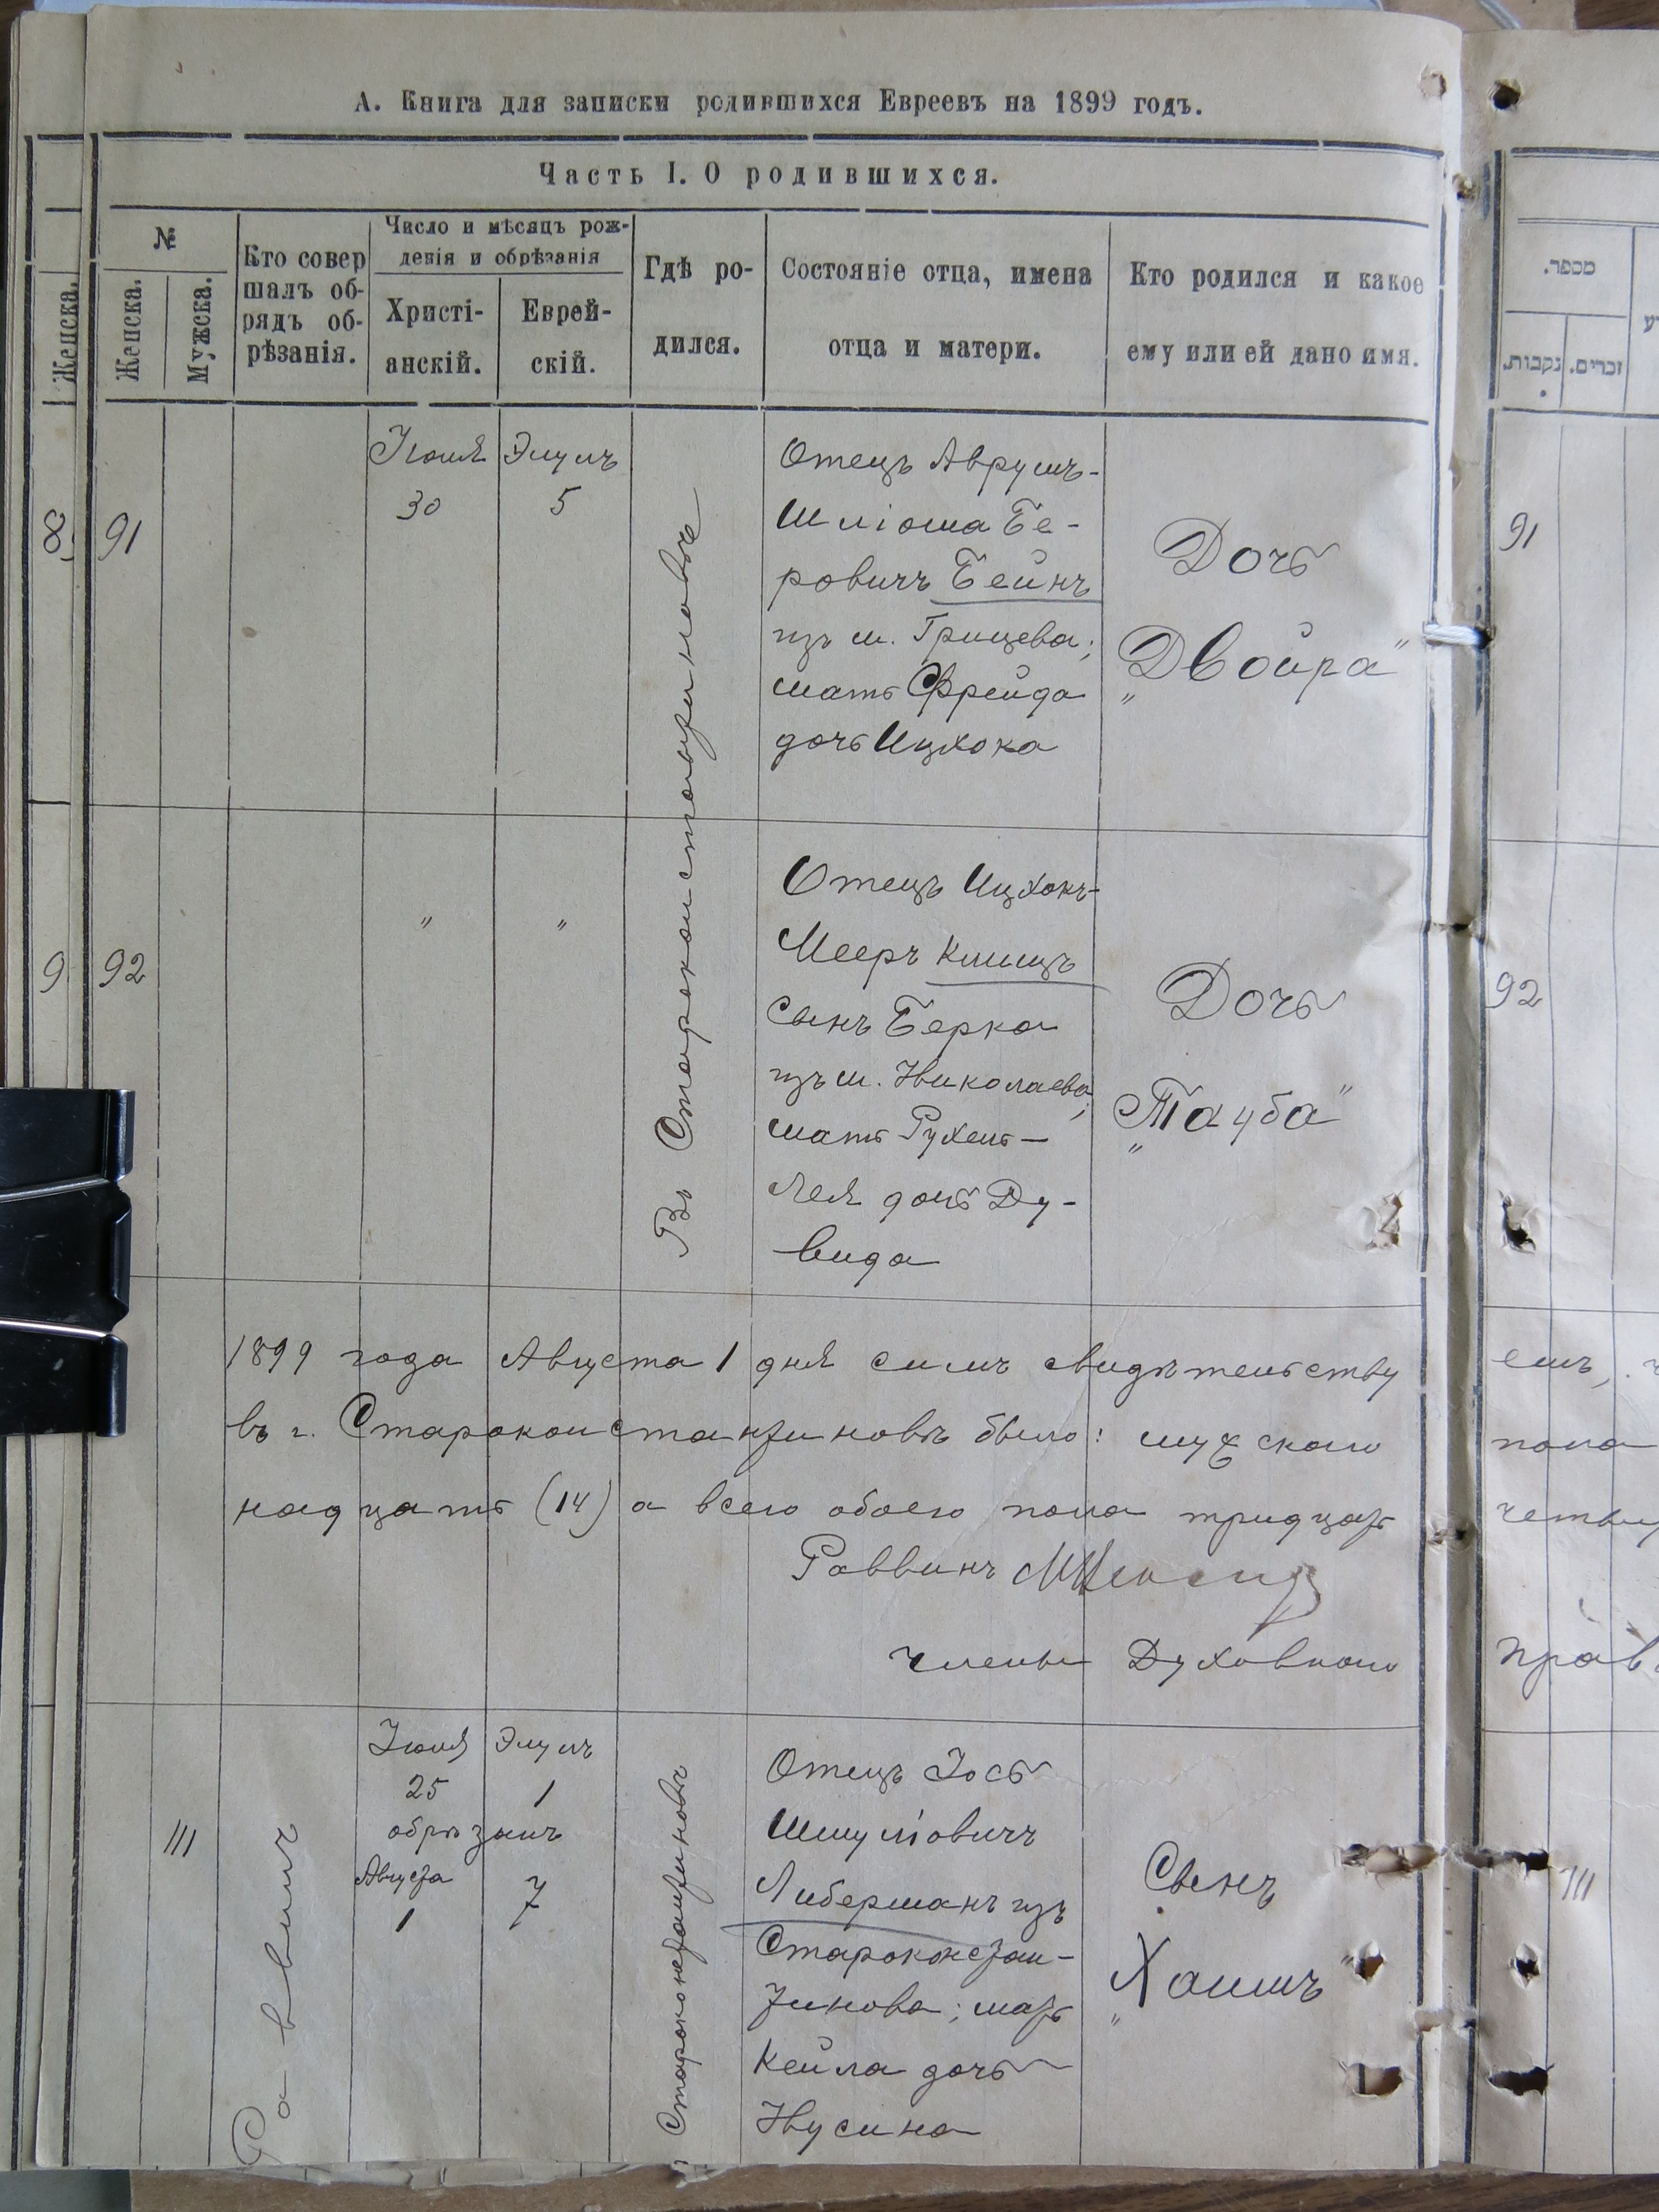 А. Книга для записки родившихся Евреевъ на 1899 годъ.
Часть I. О родившихся.
№
Женска.
Женска.
Мужска.
Кто совер
шалъ об-
рядъ об-
рѣзанія.
Число и мѣсяцъ рож-
денія и обрѣзанія
Христі-
анскій.
Еврей-
скій.
Гдѣ ро-
дился.
Состояніе отца, имена
отца и матери.
Кто родился и какое
ему или ей дано имя.
מספר.
נקבות.
זכרים.
91
Іюля
30
Элулъ
5
Въ Староконстантиновѣ
Отецъ Аврумъ-
Шліома Бе-
ровичъ Бейнъ
изъ м. Грицева;
мать Фрейда
дочь Ицхока
Дочь
„Двойра"
91
9
92
"
"
Отецъ Ицхокъ-
Мееръ Клицъ
сынъ Берка
изъ м. Николаева;
мать Рухель-
Лея дочь Ду-
вида
Дочь
„Тауба"
92
1899 года Августа 1 дня симъ свидѣтельству
емъ,
въ г. Староконстантиновѣ было: мужскаго
пола
надцать (14) а всего обоего пола тридцать
четыр
Раввинъ
Члены Духовнаго
прав
111
Раввинъ
Іюля
25
Элулъ
1
обрѣзанъ
Августа
1
7
Староконстантиновѣ
Отецъ Іось
Шмуліовичъ
Либерманъ изъ
Староконстан-
тинова; мать
Кейла дочь
Нусина
Сынъ
„Хаимъ"
111